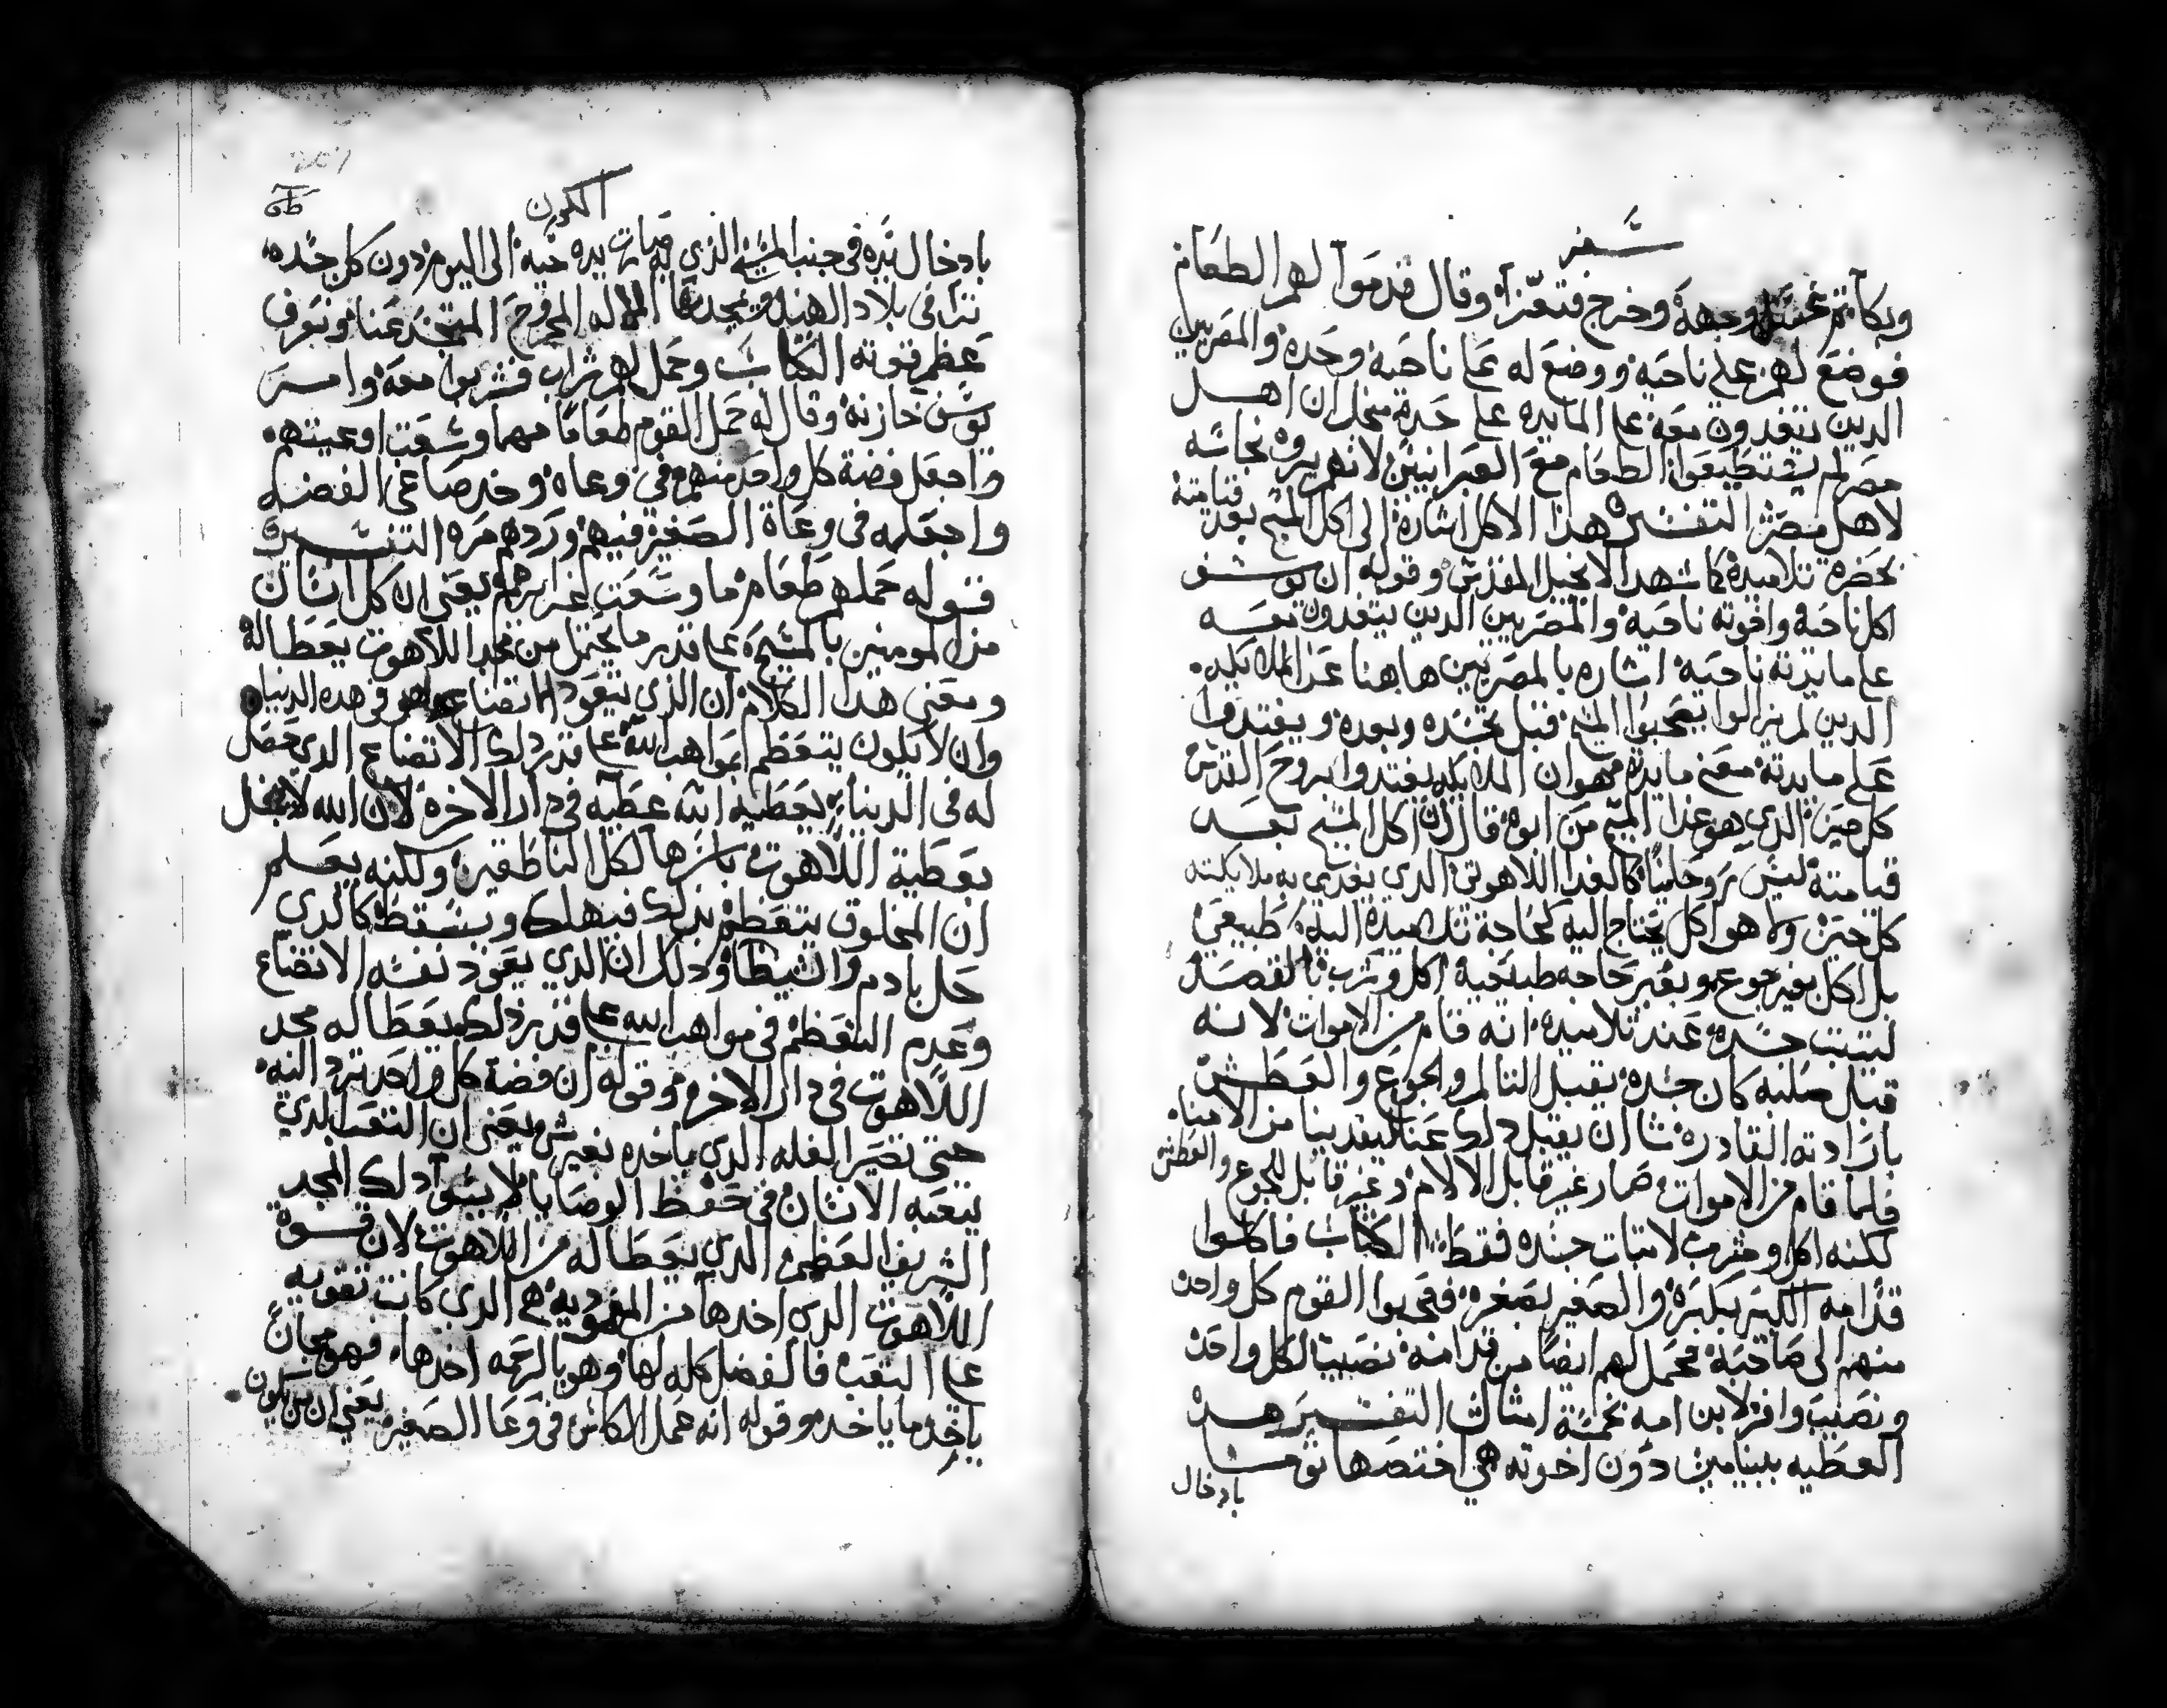 سفر
وبكا ثم غسل وجهه وخرج فتعزا وقال قدموا لهم الطعام
فوضع لهم على ناحيه ووضع له على ناحيه وحده والمصريين
الدين يتغدون معه على المايده على حده من اجل ان اهل
مصر لم يستطيعوا الطعام مع العبرانيين لانهم يروه نجاسه
لاهل مصر التفسير هذا الاكل اشارة الى اكل المسيح بعد قيامته
بحضرة تلاميده كما شهد الانجيل المقدس وقوله ان يوسف
اكل ناحيه واخوته ناحيه والمصريين الدين يتغدون معه
على مايدته ناحيه اشاره بالمصريين هاهنا عن الملايكه
الدين لم يزالوا يصحبوا المسيح قبل تجسده وبعده ويغتدوا
على مايدته معنى مايدته هو ان الملايكه يغتدوا بروح القدس
كل حين الدي هو غدا المسيح من ابوه قال ان اكل المسيح بعد
قيامته ليس روحانيا كالغدا اللاهوتى الدي يغدي به ملايكته
كل حين ولا هو اكل يحتاج اليه كحاجة تلاميده اليه طبيعي
بل اكل بغير جوع وبغير حاجه طبيعيه اكل وشرب بالقصد
ليتبت جسده عند تلاميده انه قام من الاموات لانه
قبل صلبه كان جسده يقبل التالم والجوع والعطش
بارادته القادره شا ان يقبل دلك عنا ليفدينا من الامنا
فلما قام من الاموات صار غير قابل الالام وغير قابل للجوع والعطش
لكنه اكل وشرب لاتبات جسده فقط الكتاب فاكلوا
قدامه الكبير بكبره والصغير بصغره فعجبوا القوم كل واحد
منهم الى صاحبه فحمل لهم ايضا من قدامه نصيبا لكل واحد
ونصيب وافر لابن امه بخمسة امثال التفسير هده
العطيه ببنيامين دون اخوته هي اختصها توما
بادخال
الكون
بادخال يده فى جنب المسيح الذي به صارت يده حيه الى اليوم دون كل جسده
ترا فى بلاد الهند ويمجدها الاله المجروح المتجسد عنا ونعرف
عظم قوته الكتاب وحمل لهم شراب فشربوا معه وامر
يوسف خازنه وقال له حمل القوم طعاما مهما وسعت اوعيتهم
واجعل فضة كل واحد منهم في وعاه وخد صاعي الفضه
واجعله فى وعاة الصغير فيهم وردهم مره التفسير
قوله حملهم طعام ما وسعت غرايرهم يعني ان كل انسان
من المومنين بالمسيح على قدر ما يحتمل من مجد اللاهوت يعطا له
ومعنى هدا الكلام ان الذي يتعود الاتضاع هو فى هده الدنيا
وان لا يكون يتعظم بمواهب الله على قدر دلك الاتضاع الدي حصل
له فى الدنيا يعطيه الله عطيه فى دار الاخره لان الله لا يبخل
بعطية اللاهوت باسرها لكل الناطقين ولكنه يعلم
ان المخلوق يتعظم بذلك فيهلك ويسقط كالدي
حل بادم والشيطان ودلك ان الدي يعود نفسه الاتضاع
وعدم التعظم فى مواهب الله على قدر ذلك يعطا له مجد
اللاهوت فى دار الاخره وقوله ان فضة كل واحد ترد اليه
حتى تصير الغله الدي ياخده بغير شى يعني ان التعب الدي
يتعبه الانسان في حفظ الوصايا لا يسوا دلك المجد
الشريف العظيم الدي يعطا له من اللاهوت لان قوة
اللاهوت الدي اخدها من المعموديه هى الدي كانت تقويه
على التعب فالفضل كله لها وهو بالرحمه اخدها فهو مجانً
ياخد ما ياخده وقوله انه حمل الكاس فى وعا الصغير يعني ان من يكون